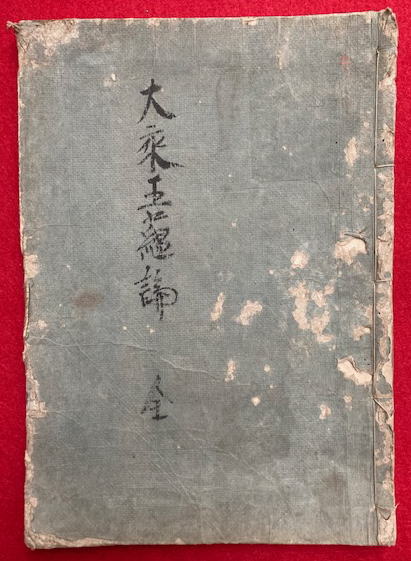 大乘五蘊論 全